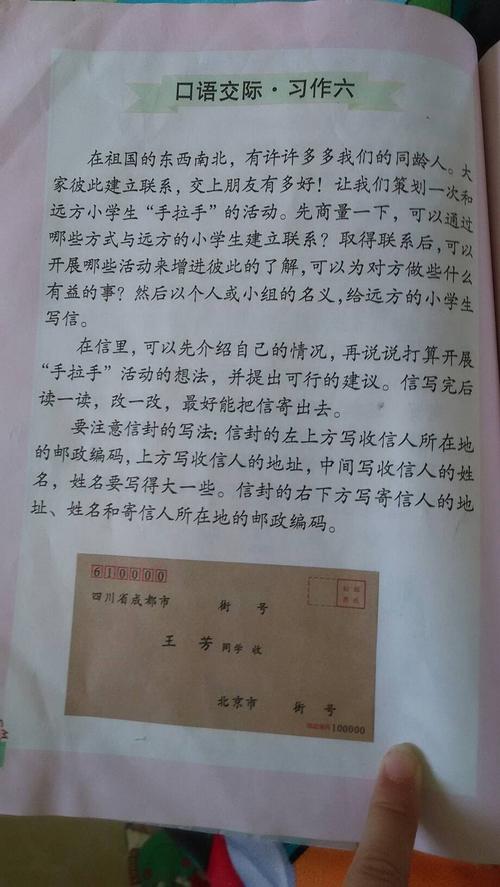 口语交际·习作六
在祖国的东西南北，有许许多多我们的同龄人。大
家彼此建立联系，交上朋友有多好！让我们策划一次和
远方小学生“手拉手”的活动。先商量一下，可以通过
哪些方式与远方的小学生建立联系？取得联系后，可以
开展哪些活动来增进彼此的了解，可以为对方做些什么
有益的事？然后以个人或小组的名义，给远方的小学生
写信。
在信里，可以先介绍自己的情况，再说说打算开展
“手拉手”活动的想法，并提出可行的建议。信写完后
读一读，改一改，最好能把信寄出去。
要注意信封的写法：信封的左上方写收信人所在地
的邮政编码，上方写收信人的地址，中间写收信人的姓
名，姓名要写得大一些。信封的右下方写寄信人的地
址、姓名和寄信人所在地的邮政编码。
610000
四川省成都市 街 号
王 芳 同学 收
北京市 街 号
邮政编码 100000